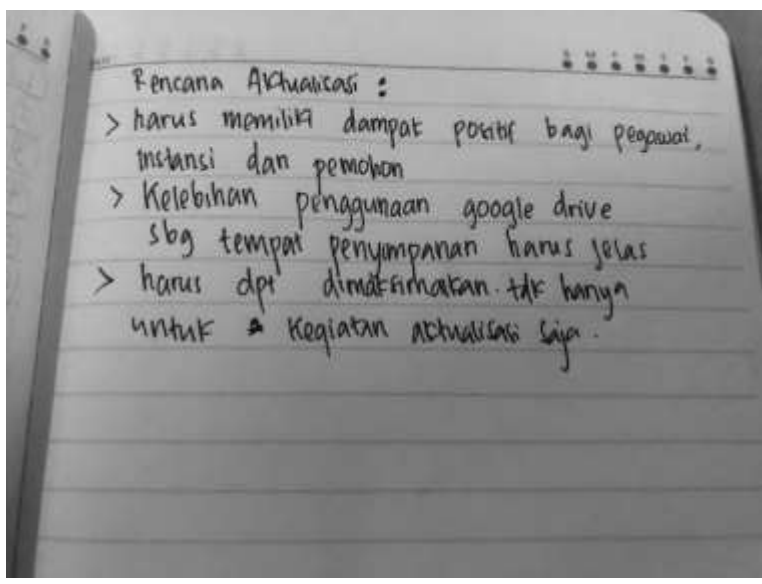 Rencana Aktualisasi :
> harus memiliki dampat positif bagi pegawai,
instansi dan pemohon
> Kelebihan penggunaan google drive
sbg tempat penyimpanan harus jelas
> harus dpt dimaksimalkan. tdk hanya
untuk kegiatan aktualisasi saja.